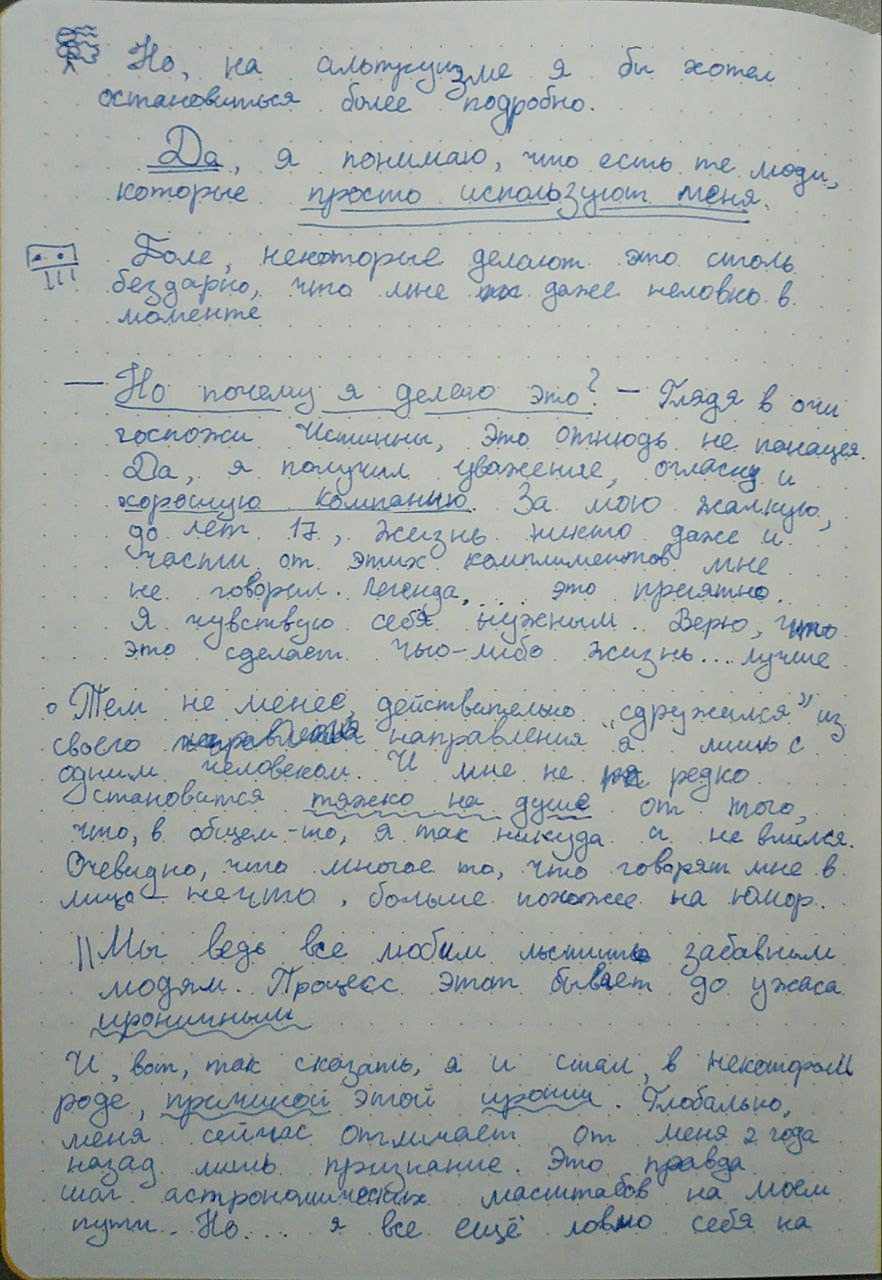 Но, на альтруизме я бы хотел
остановиться более подробно.
Да, я понимаю, что есть те люди,
которые просто используют меня.
Боле, некоторые делают это столь
бездарно, что мне даже неловко в
моменте
— Но почему я делаю это? — Глядя в очи
госпожи Истинны, это отнюдь не панацея.
Да, я получил уважение, огласку и
хорошую компанию. За мою жалкую,
до лет 17, жизнь никто даже и
части от этих комплиментов мне
не говорил. Легенда.... это приятно.
Я чувствую себя нужным. Верю, что
это сделает чью-либо жизнь... лучше
Тем не менее, действительно „сдружился” из
своего направления я лишь с
одним человеком. И мне не редко
становится тяжко на душе от того,
что, в общем-то, я так никуда и не влился.
Очевидно, что многое то, что говорят мне в
лицо – нечто, больше похожее на юмор.
Мы ведь все любим льстить забавным
людям. Процесс этот бывает до ужаса
ироничным
И, вот, так сказать, я и стал, в некотором
роде, причиной этой иронии. Глобально,
меня сейчас отличает от меня 2 года
назад лишь признание. Это правда
шаг астрономических масштабов на моем
пути.. Но... я все ещё ловлю себя на